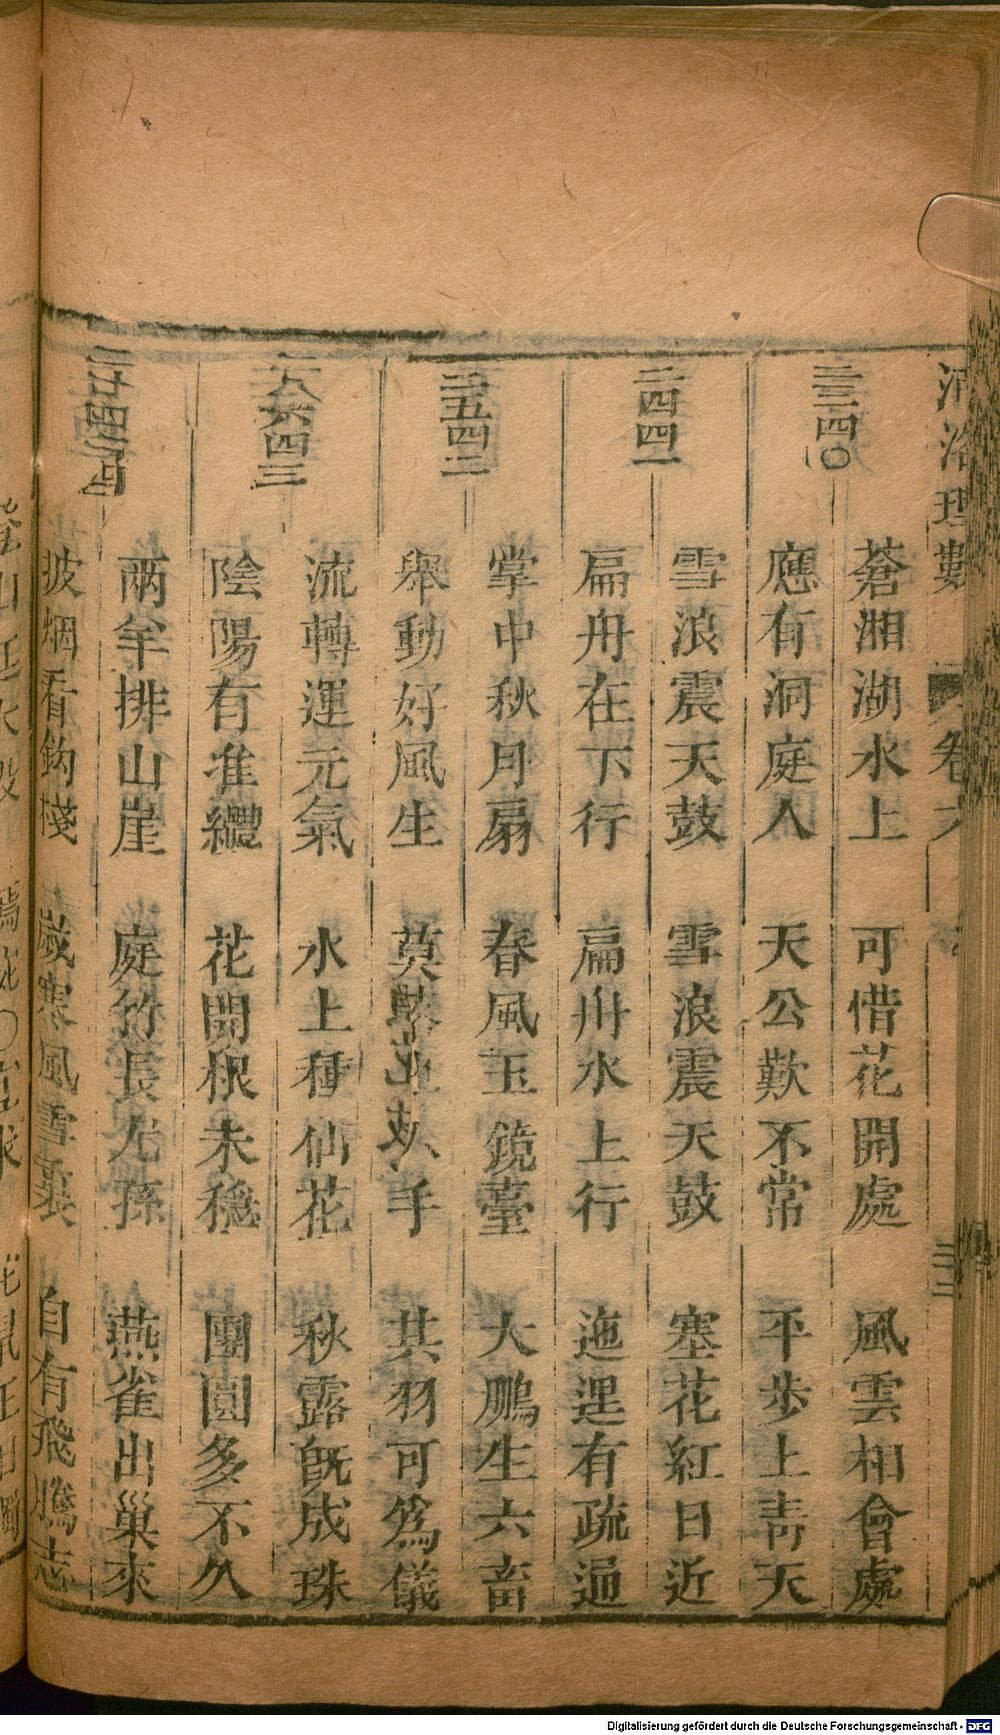 河洛理數 卷六 三三
三三四〇
蒼湘湖水上 可惜花開處 風雲相會處
應有洞庭人 天公歎不常 平步上青天
三四四一
雪浪震天鼓 雪浪震天鼓 塞花紅日近
扁舟在下行 扁舟水上行 迤逕有疏通
三五四二
掌中秋月扇 春風玉鏡臺 大鵬生六畜
舉動好風生 莫 手 共羽可為儀
六四三
流轉運元氣 水上種仙花 秋露旣成珠
陰陽有准繩 花開根未穩 團圓多不久
两羊排山崖 庭竹長尤孫 燕雀出巢來
披烟看鈎棧 歲寒風雪裏 自有飛騰志
Digitalisierung gefördert durch die Deutsche Forschungsgemeinschaft - DFG